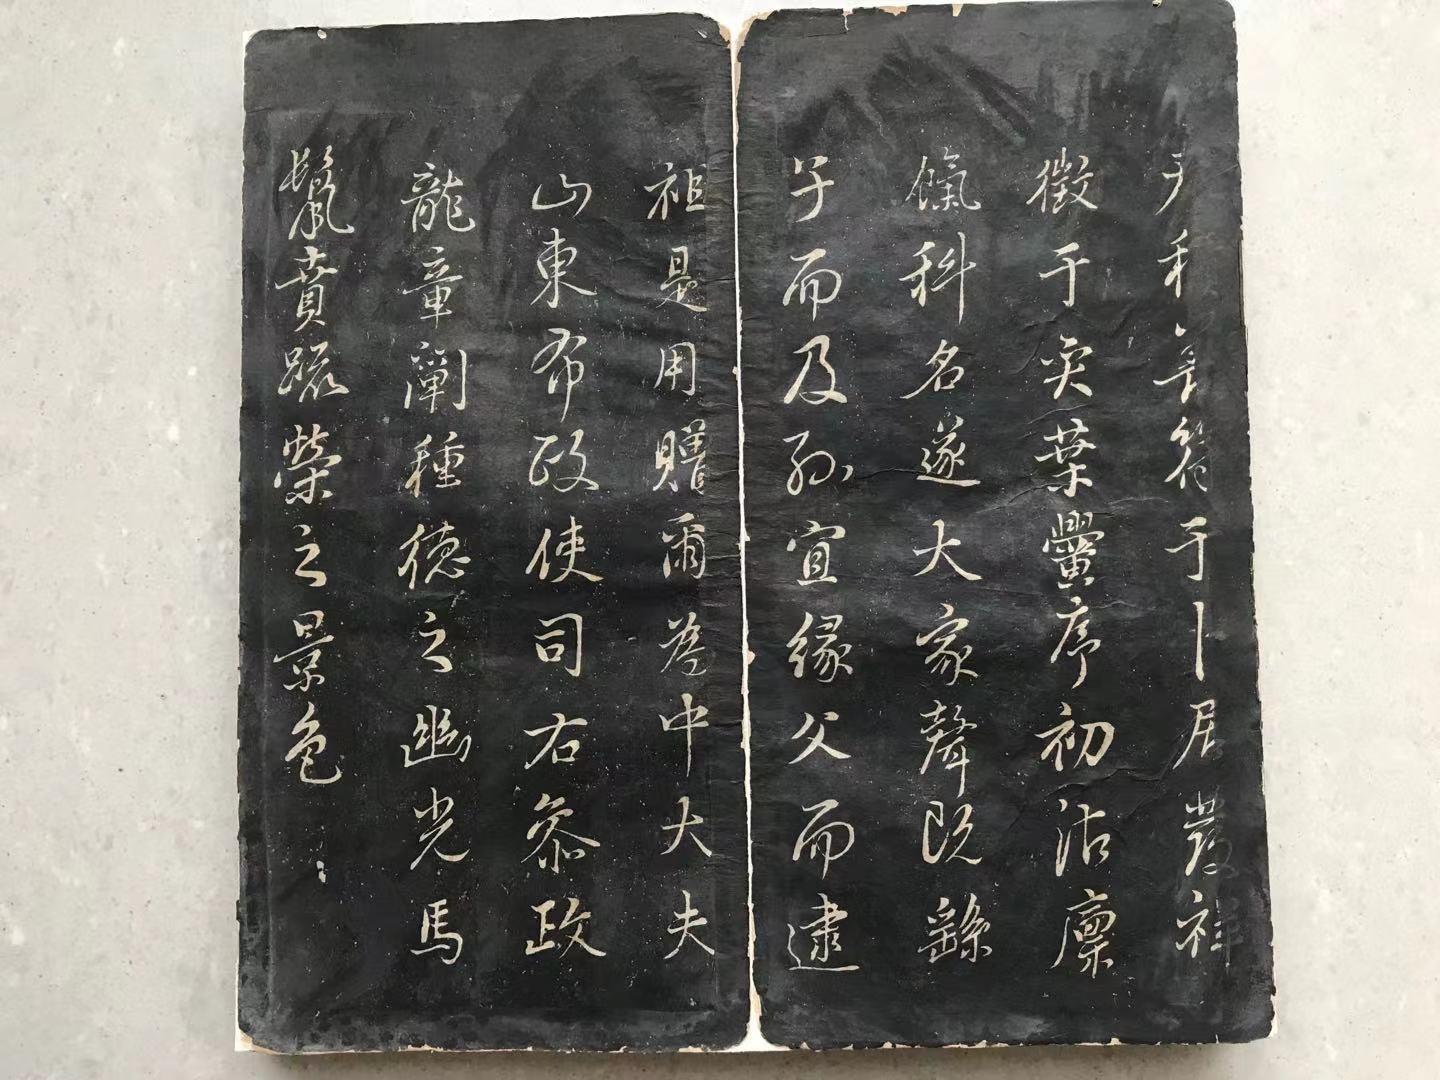 符于卜居發祥
徵于奕葉黌序初沾廩
餼科名遂大家聲既繇
子而及孫宜緣父而逮
祖是用贈爾為中大夫
山東布政使司右參政
龍章闡種德之幽光馬
鬣賁疏榮之景色